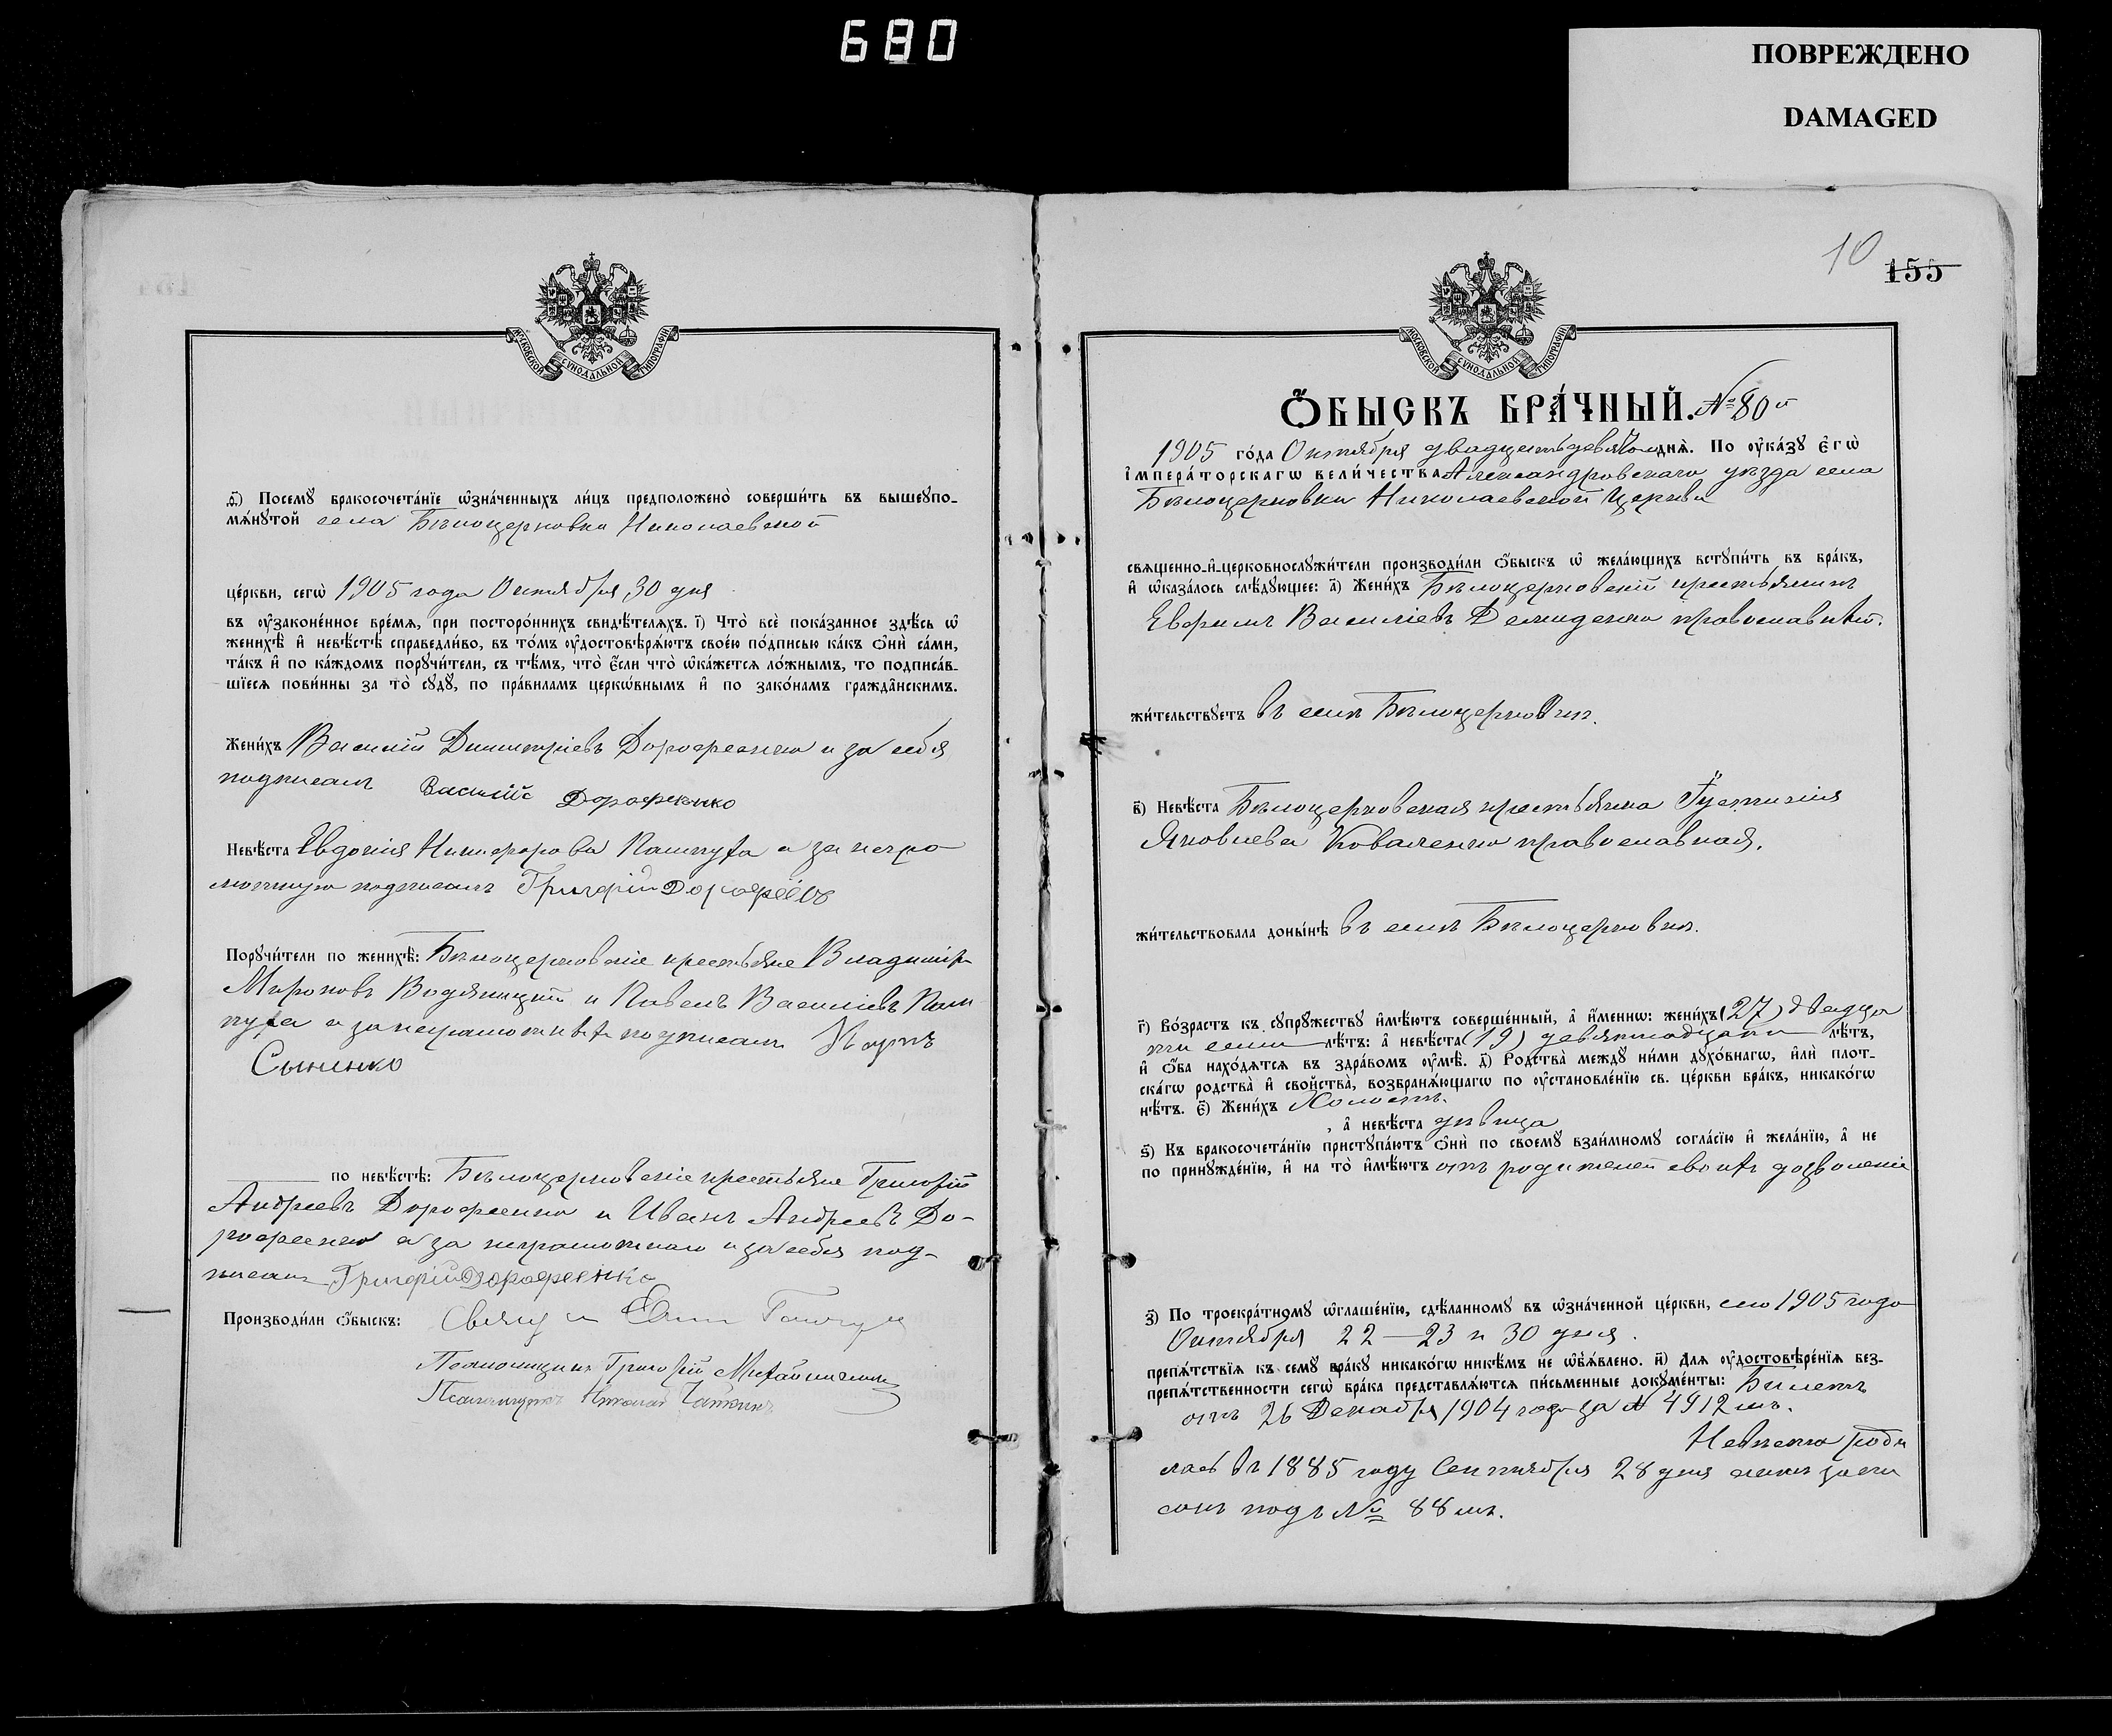 680
ПОВРЕЖДЕНО
DAMAGED
МОСКОВСКОЙ СѴНОДАЛЬНОЙ ТИПОГРАФІИ
ѳ҃) Посемꙋ бракосочета́нїе ѡ҆зна́ченныхъ ли́цъ предположено̀ соверши́ть въ вышеꙋпо-
мѧ́нꙋтой села Бѣлоцерковки Николаевской
це́ркви, сегѡ̀ 1905 года Октября 30 дня
въ ᲂу҆зако́ненное вре́мѧ, при посторо́ннихъ свидѣ́телѧхъ. і҃) Что̀ всѐ пока́занное здѣ́сь ѡ҆
женихѣ̀ и҆ невѣ́стѣ справедли́во, въ то́мъ ᲂу҆достовѣрѧ́ютъ свое́ю по́дписью ка́къ ѻ҆нѝ са́ми,
та́къ и҆ по ка́ждомъ порꙋчи́тели, съ тѣ́мъ, что̀ є҆́сли что̀ ѡ҆ка́жетсѧ ло́жнымъ, то подписа́в-
шїесѧ пови́нны за то̀ сꙋдꙋ̀, по пра́виламъ церкѡ́внымъ и҆ по зако́намъ гражда̂нскимъ.
Жени́хъ Василій Димитріевъ Дорофеенко и за себя
подписалъ Василій Дорофеенко
Невѣ́ста Евдокія Никифорова Пашпуха а за негра-
мотную подписалъ Григорій Дорофеевъ
Порꙋчи́тели по женихѣ̀: Бѣлоцерковскіе крестьяне Владиміръ
Мироновъ Водяницкій и Павелъ Василіевъ Паш-
пуха а за неграмотныхъ подписалъ Карпъ
Сыненко
по невѣ́стѣ: Бѣлоцерковскіе крестьяне Григорій
Андреевъ Дорофеенко и Иванъ Андреевъ До-
рофеенко а за неграмотнаго и за себя под-
писалъ Григорій Дорофеенко
Производи́ли ѻ҆́быскъ: Свящ
Псаломщикъ Григорій
Псаломщикъ Николай
10
155
МОСКОВСКОЙ СѴНОДАЛЬНОЙ ТИПОГРАФІИ
Ѻ҆́БЫСКЪ БРА́ЧНЫЙ. № 80й
1905 го́да Октября двадцать девятаго днѧ̀. По ᲂу҆ка́зꙋ є҆гѡ̀
і҆мпера́торскагѡ вели́чества Александровскаго уѣзда села
Бѣлоцерковки Николаевской Церкви
свѧщенно-и҆-церковнослꙋжи́тели производи́ли ѻ҆́быскъ ѡ҆ жела́ющихъ встꙋпи́ть въ бра́къ,
и҆ ѡ҆каза́лось слѣ́дꙋющее: а҃) Жени́хъ Бѣлоцерковскій крестьянинъ
Евфимъ Василіевъ Демиденко православный.
жи́тельствꙋетъ въ селѣ Бѣлоцерковкѣ.
в҃) Невѣ́ста Бѣлоцерковская крестьянка Іустинія
Яковлева Коваленко православная.
жи́тельствовала доны́нѣ въ селѣ Бѣлоцерковкѣ.
г҃) Во́зрастъ къ сꙋпрꙋ́жествꙋ и҆мѣ́ютъ соверше́нный, а҆ и҆́меннѡ: жени́хъ (27) двадца-
ти семи лѣ́тъ: а҆ невѣ́ста (19) девятнадцати лѣ́тъ,
и҆ ѻ҆́ба нахо́дѧтсѧ въ здра́вомъ ᲂу҆мѣ̀. д҃) Родства̀ междꙋ̀ ни́ми дꙋхо́внагѡ, и҆лѝ плот-
ска́гѡ родства̀ и҆ свойства̀, возбранѧ́ющагѡ по ᲂу҆становле́нїю св. це́ркви бра́къ, никако́гѡ
нѣ́тъ. є҃) Жени́хъ Холостъ.
, а҆ невѣ́ста дѣвица
ѕ҃) Къ бракосочета́нїю пристꙋпа́ютъ ѻ҆нѝ по своемꙋ̀ взаи́мномꙋ согла́сїю и҆ жела́нїю, а҆ не
по принꙋжде́нїю, и҆ на то̀ и҆мѣ́ютъ отъ родителей своихъ дозволеніе
з҃) По троекра́тномꙋ ѡ҆глаше́нїю, сдѣ́ланномꙋ въ ѡ҆зна́ченной це́ркви, сего 1905 года
Октября 22 — 23 и 30 дня.
препѧ́тствїѧ къ семꙋ̀ бра́кꙋ никако́гѡ никѣ́мъ не ѡ҆б̾ѧ́влено. и҃) Длѧ ᲂу҆достовѣре́нїѧ без-
препѧ́тственности сегѡ̀ бра́ка представлѧ́ютсѧ пи́сьменные докꙋме́нты: Билетъ
отъ 26 Декабря 1904 года за № 4912мъ.
Невѣста роди-
лась въ 1885 году Сентября 28 дня актъ запи
санъ подъ № 88мъ.